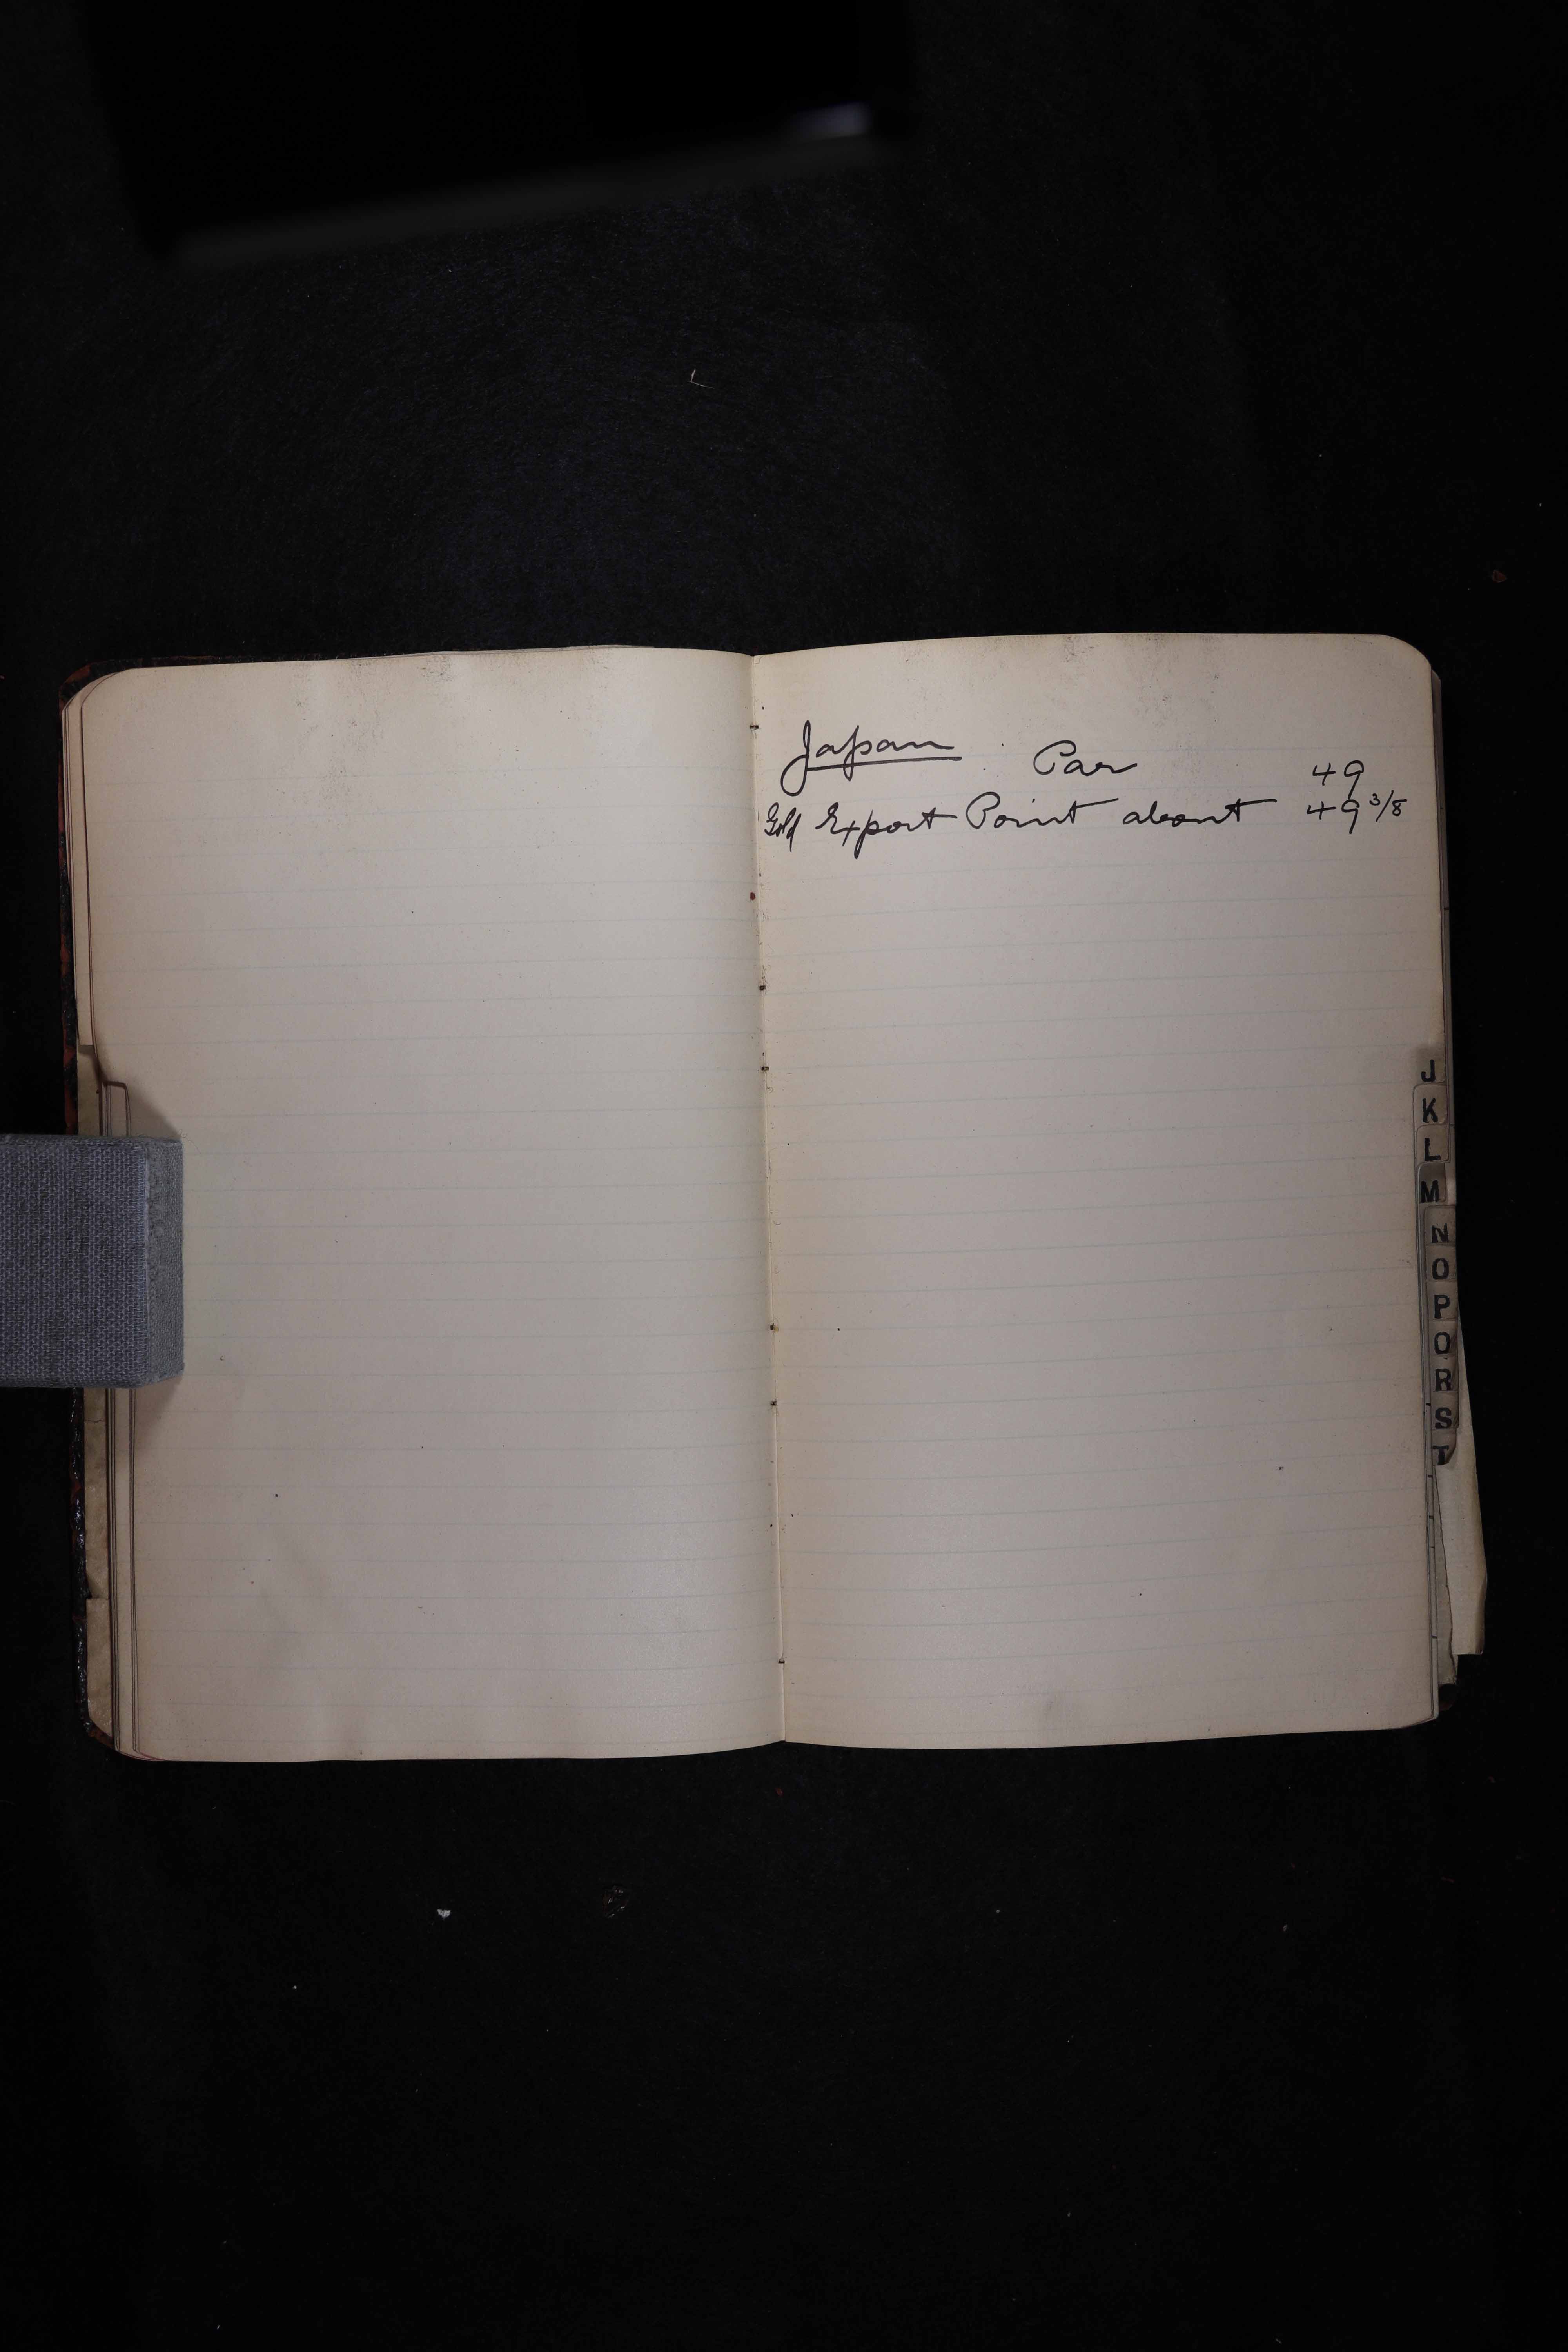 Japan Par 49
Gold Export Point about 49 3/8
J
K
L
M
N
O
P
Q
R
S
T